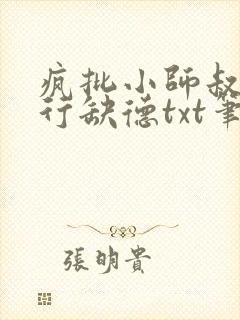 疯批小師叔
行缺德txt筆
張明貴